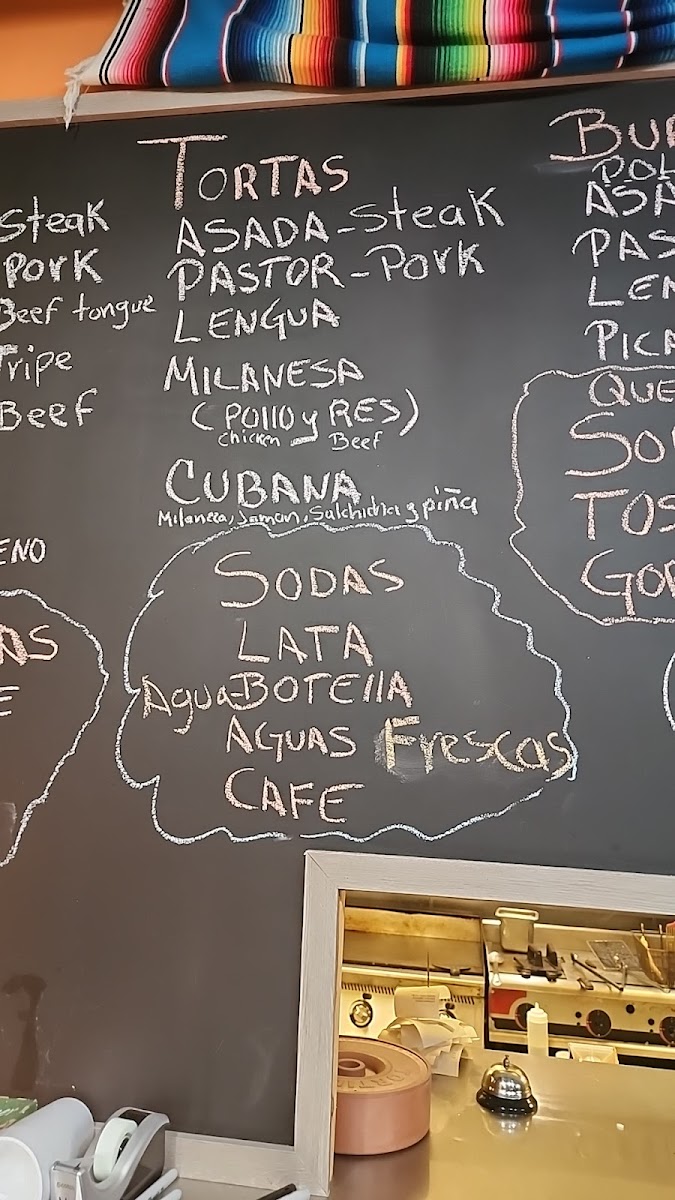 Steak
Pork
Beef tongue
Tripe
Beef
ENO
AS
E
TORTAS
ASADA-Steak
PASTOR-Pork
LENGUA
MILANESA
(POllO y RES)
Chicken Beef
CUBANA
Milanesa, Jamon, Salchicha y piña
SODAS
LATA
Agua-BOTEllA
AGUAS Frescas
CAFE
BUR
POL
ASA
PAS
LEN
PICA
QUE
SO
TOS
GOR